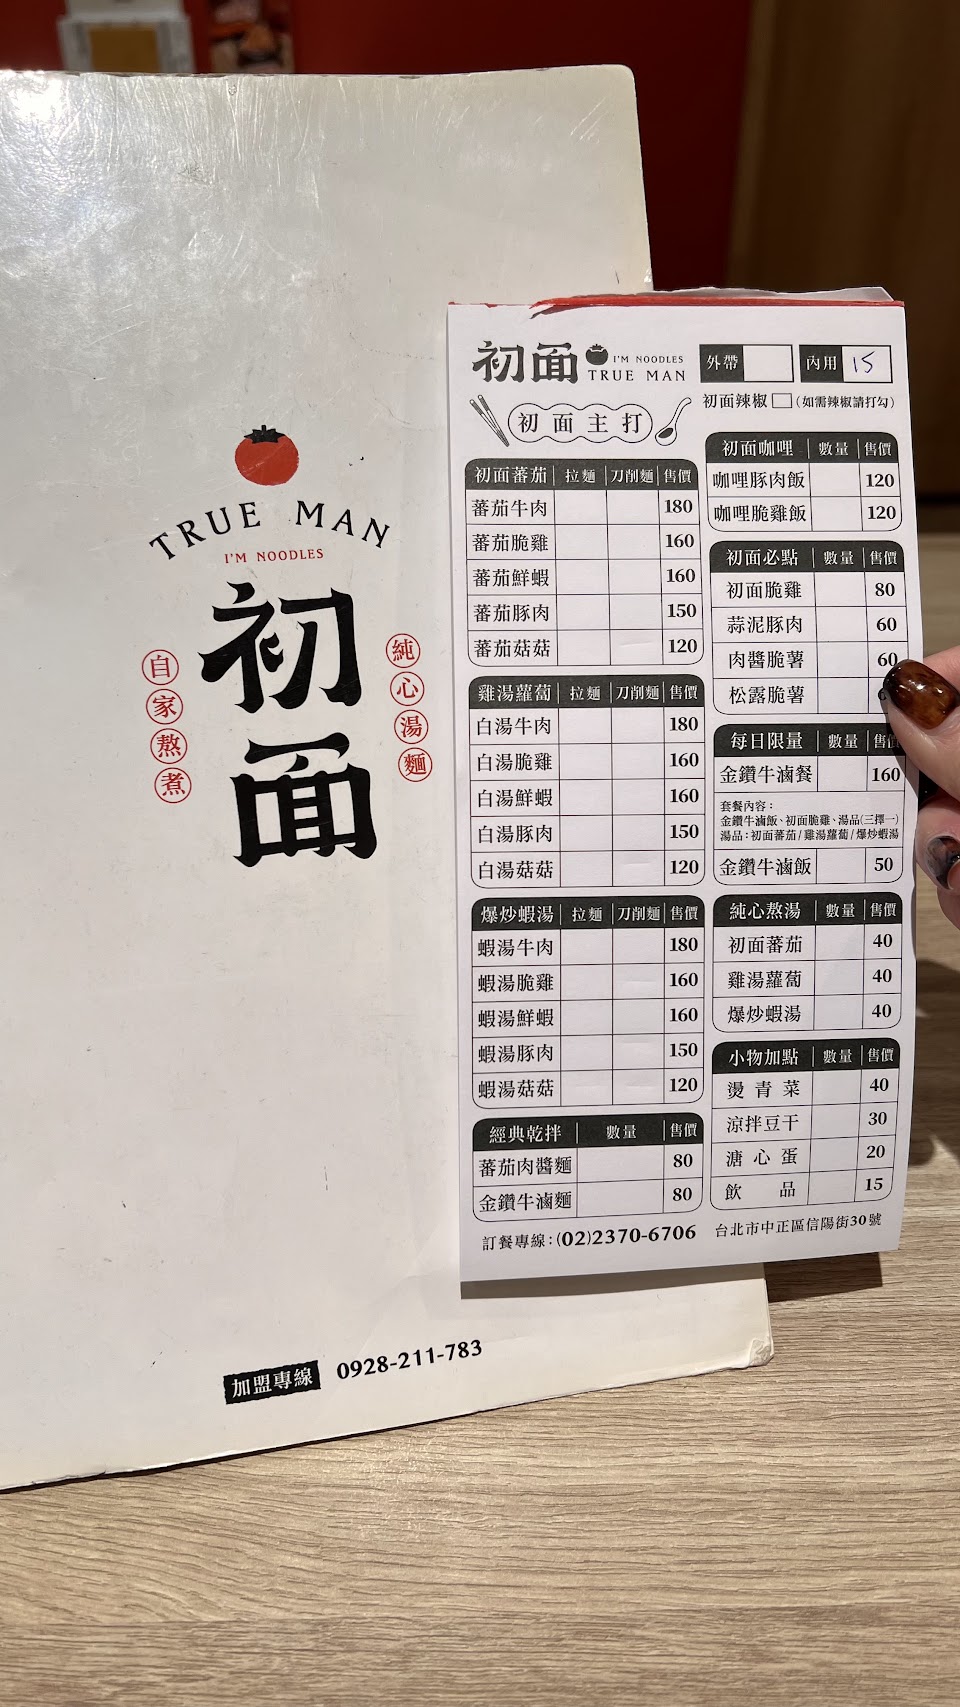 TRUE MAN
I'M NOODLES
初面
自家熬煮
純心湯麵
加盟專線 0928-211-783
初面 I'M NOODLES
TRUE MAN
外帶
內用 15
初面辣椒 (如需辣椒請打勾)
初面主打
初面蕃茄 拉麵 刀削麵 售價
蕃茄牛肉 180
蕃茄脆雞 160
蕃茄鮮蝦 160
蕃茄豚肉 150
蕃茄菇菇 120
雞湯蘿蔔 拉麵 刀削麵 售價
白湯牛肉 180
白湯脆雞 160
白湯鮮蝦 160
白湯豚肉 150
白湯菇菇 120
爆炒蝦湯 拉麵 刀削麵 售價
蝦湯牛肉 180
蝦湯脆雞 160
蝦湯鮮蝦 160
蝦湯豚肉 150
蝦湯菇菇 120
經典乾拌 數量 售價
蕃茄肉醬麵 80
金鑽牛滷麵 80
初面咖哩 數量 售價
咖哩豚肉飯 120
咖哩脆雞飯 120
初面必點 數量 售價
初面脆雞 80
蒜泥豚肉 60
肉醬脆薯 60
松露脆薯
每日限量 數量 售價
金鑽牛滷餐 160
套餐內容：
金鑽牛滷飯、初面脆雞、湯品(三擇一)
湯品：初面蕃茄/雞湯蘿蔔/爆炒蝦湯
金鑽牛滷飯 50
純心熬湯 數量 售價
初面蕃茄 40
雞湯蘿蔔 40
爆炒蝦湯 40
小物加點 數量 售價
燙青菜 40
涼拌豆干 30
溏心蛋 20
飲品 15
訂餐專線：(02)2370-6706 台北市中正區信陽街30號